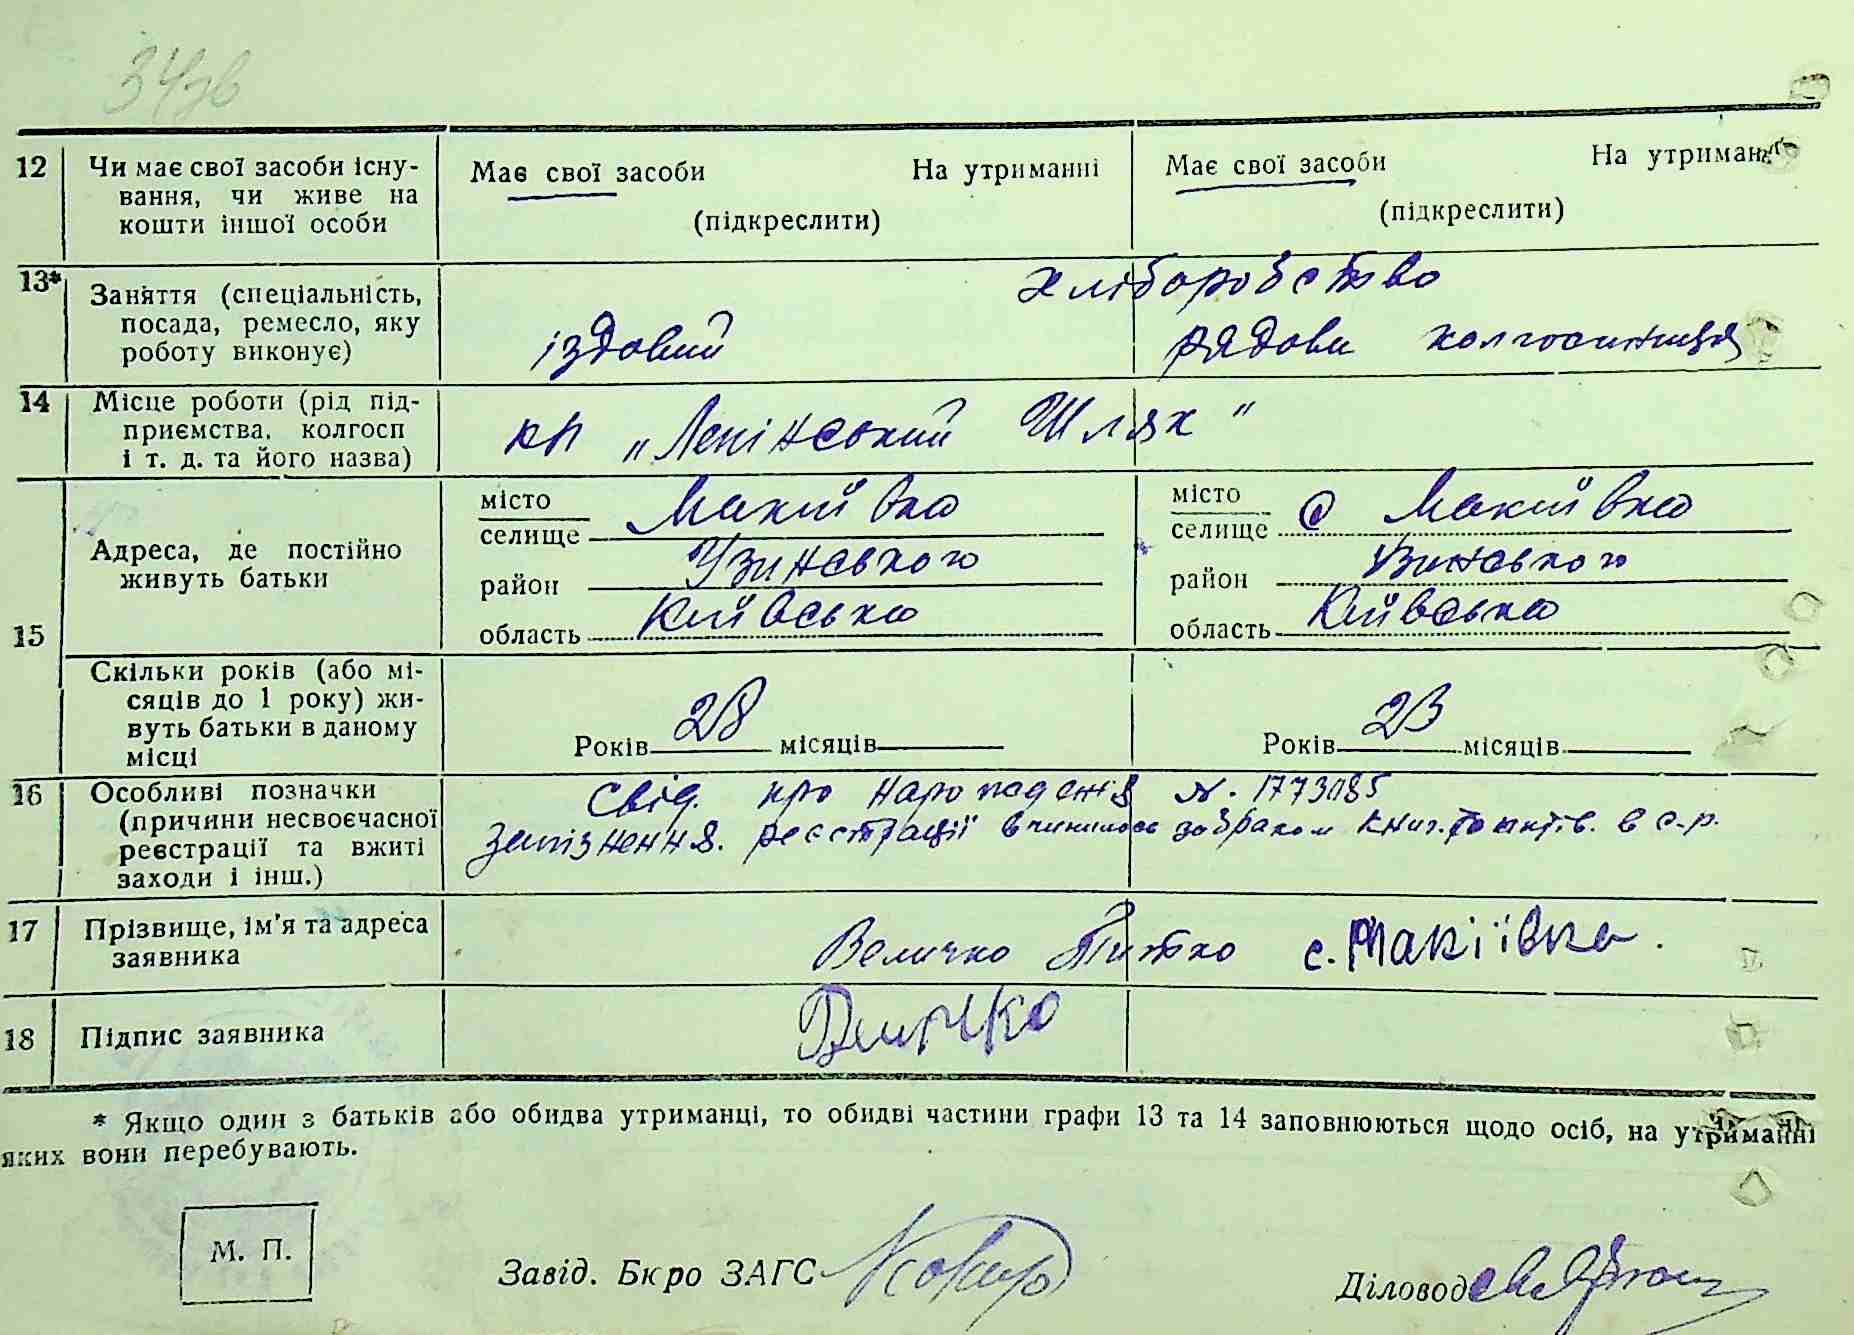 34зв
12 Чи має свої засоби існу- Має свої засоби На утриманні Має свої засоби На утриманні
вання, чи живе на
кошти іншої особи (підкреслити) (підкреслити)
13* хліборобство
Заняття (спеціальність,
посада, ремесло, яку їздовий рядова колгоспниця
роботу виконує)
14 Місце роботи (рід під-
приємства, колгосп кп „Ленінський Шлях"
і т. д. та його назва)
15
Адреса, де постійно
живуть батьки
місто
селище Макиївка
район Узинського
область Київська
місто
селище с Макиївка
район Узинського
область Київська
Скільки років (або мі-
сяців до 1 року) жи-
вуть батьки в даному
місці
Років 28 місяців
Років 23 місяців
16 Особливі позначки
(причини несвоєчасної
реєстрації та вжиті
заходи і інш.)
Свід. про народження №. 1773085
запізнення. реєстрації вчинилось забраком книг. в с-р.
17 Прізвище, ім'я та адреса
заявника
Величко с. Макіївка.
18 Підпис заявника
Величко
* Якщо один з батьків або обидва утриманці, то обидві частини графи 13 та 14 заповнюються щодо осіб, на утриманні
яких вони перебувають.
М. П.
Завід. Бюро ЗАГС
Діловод